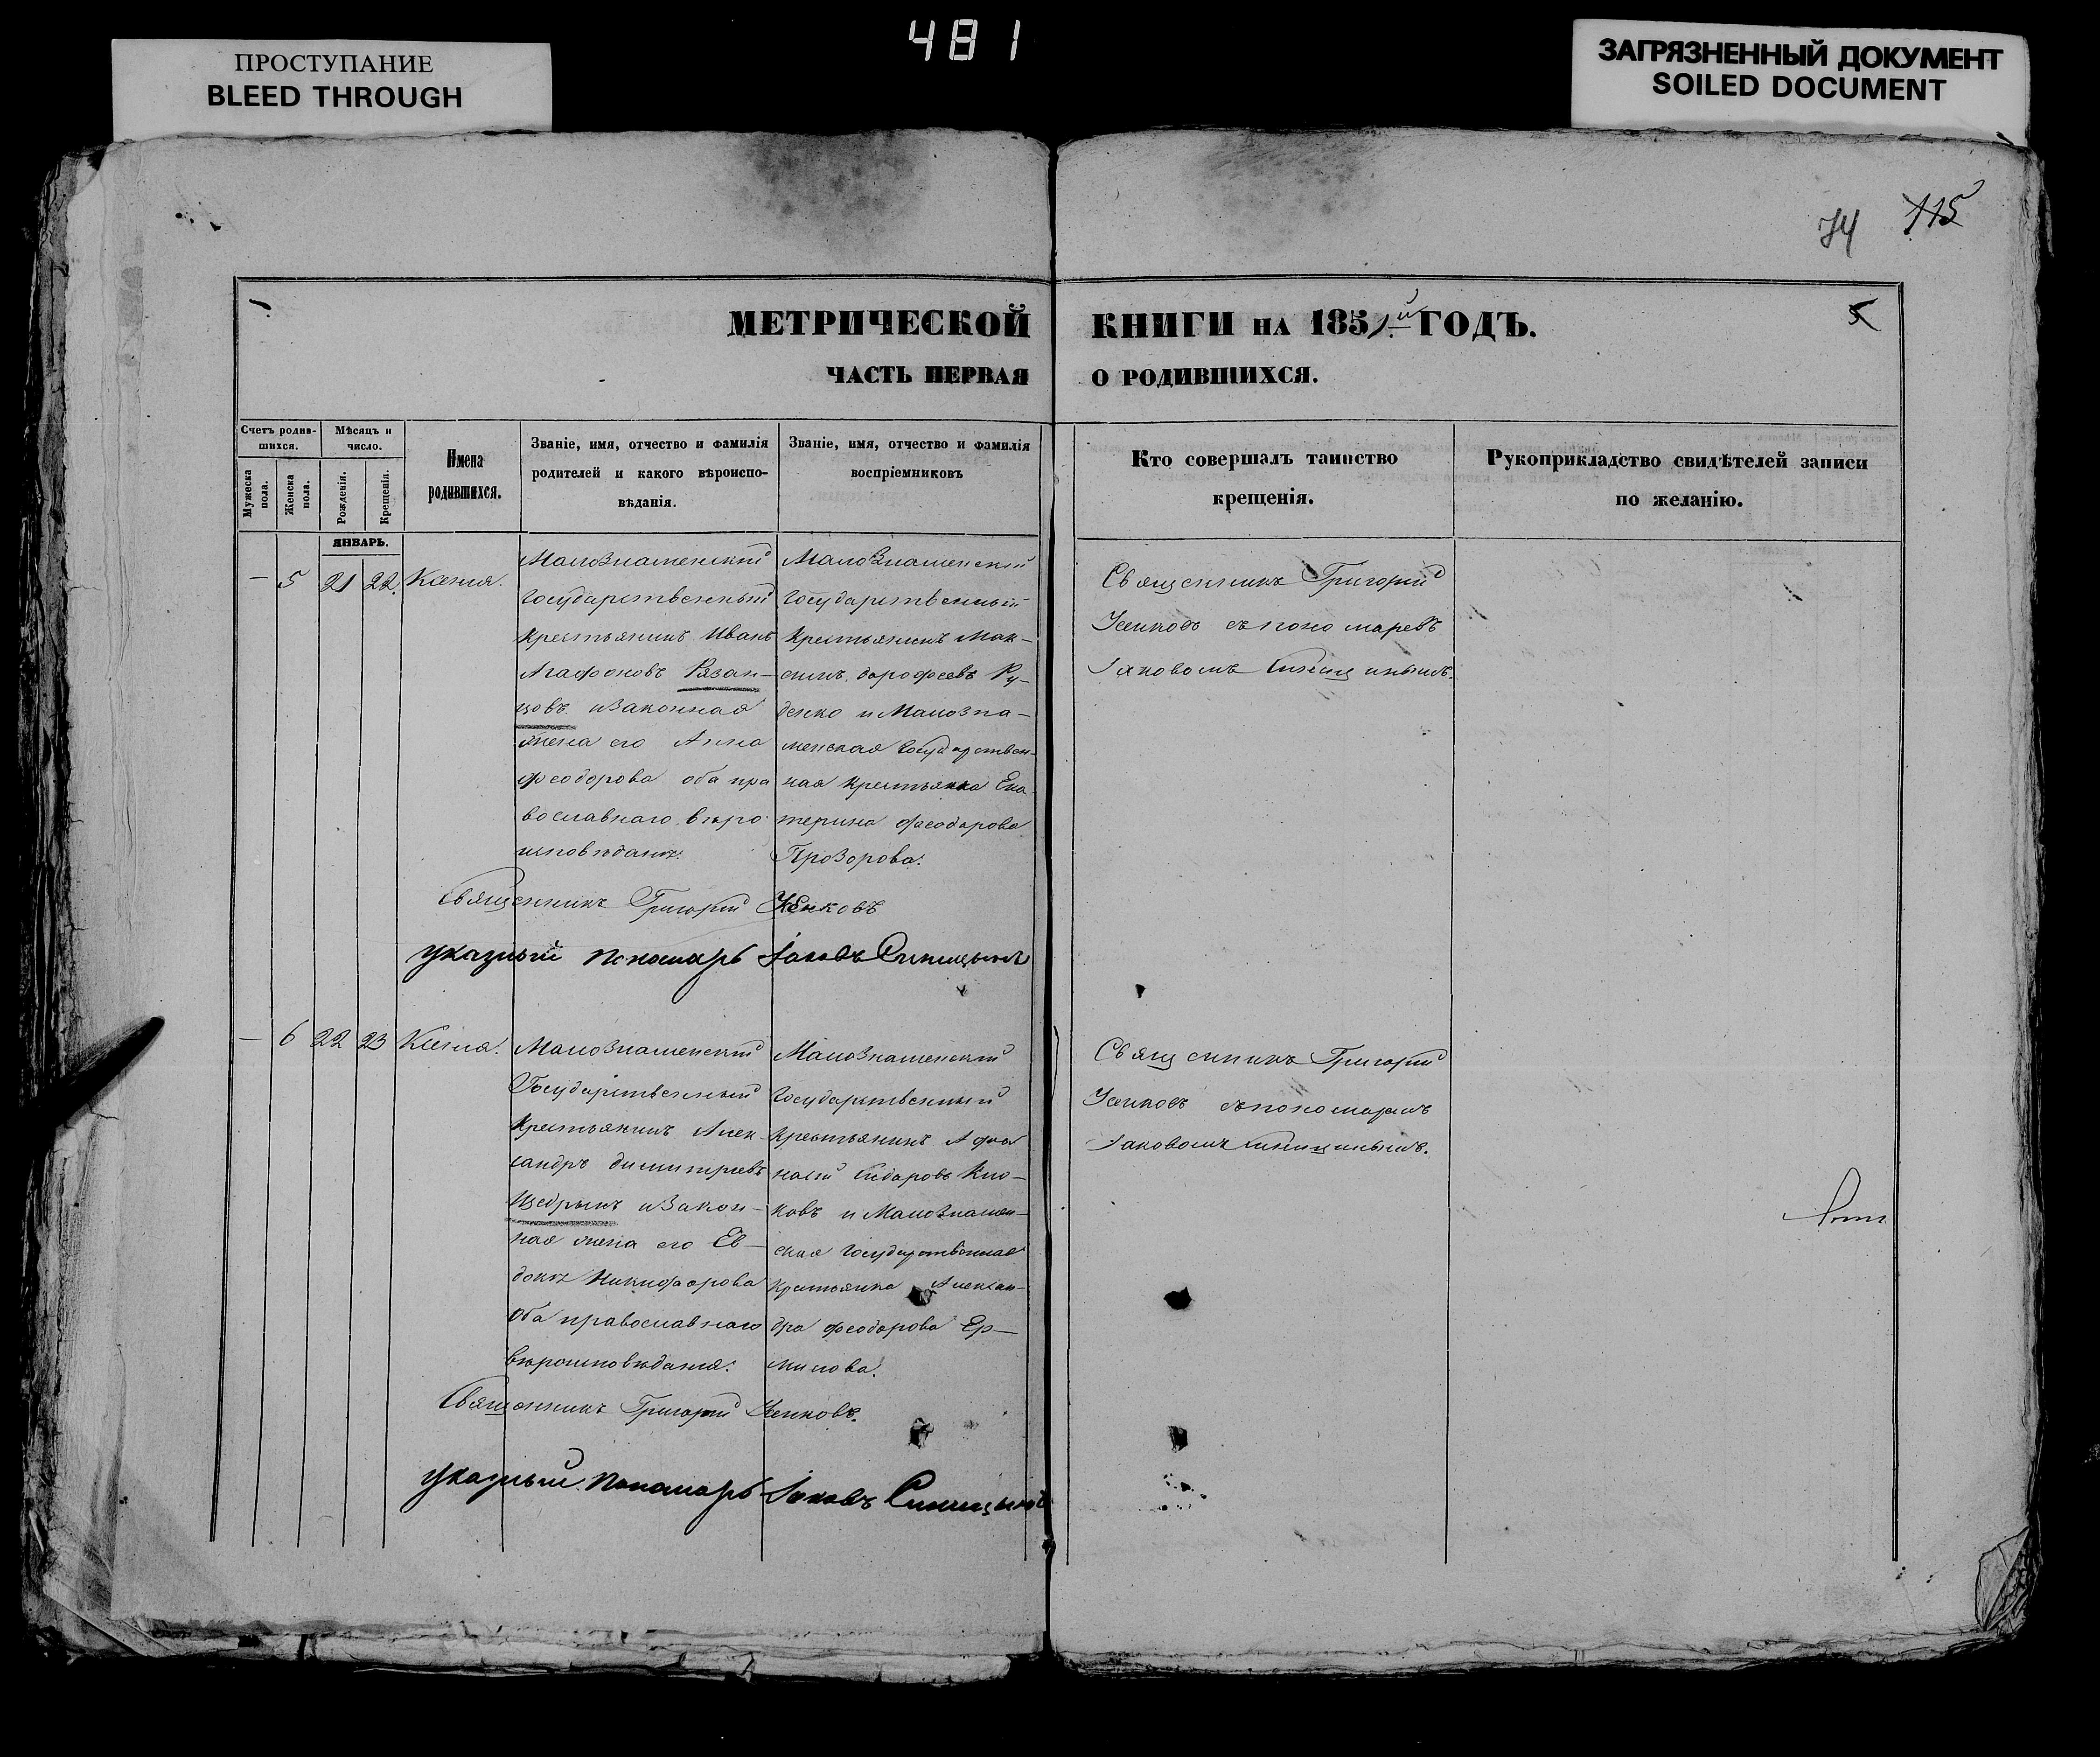 481
ПРОСТУПАНИЕ
BLEED THROUGH
ЗАГРЯЗНЕННЫЙ ДОКУМЕНТ
SOILED DOCUMENT
74 115
МЕТРИЧЕСКОЙ КНИГИ НА 1851.й ГОДЪ.
5
ЧАСТЬ ПЕРВАЯ О РОДИВШИХСЯ.
Счетъ родив-
шихся.
Мужеска
пола.
Женска
пола.
Мѣсяцъ и
число.
Рожденія.
Крещенія.
Имена
родившихся.
Званіе, имя, отчество и фамилія
родителей и какого вѣроиспо-
вѣданія.
Званіе, имя, отчество и фамилія
воспріемниковъ
Кто совершалъ таинство
крещенія.
Рукоприкладство свидѣтелей записи
по желанію.
ЯНВАРЬ.
— 5 21 22. Ксенія.
Малознаменскій
Государственный
крестьянинъ Иванъ
Агафоновъ Рязан-
цовъ и Законная
жена его Анна
Феодорова оба пра
вославнаго вѣро
исповѣданія.
Малознаменскій
Государственный
Крестьянинъ Мак-
симъ дорофеевъ Ру-
денко и Малозна-
менская Государствен-
ная крестьянка Ека
терина Феодорова
Прозорова.
Священникъ Григорій
Усиковъ съ пономаремъ
Іаковомъ Синицинымъ.
Священникъ Григорій Усиковъ
указный пономарь Іаковъ Синицынъ
— 6 22 23 Ксенія.
Малознаменскій
Государственный
Крестьянинъ Алек-
сандръ димитріевъ
Щедринъ и Закон-
ная жена его Ев-
докія Никифорова
Оба православнаго
вѣроисповѣданія.
Малознаменскій
Государственный
Крестьянинъ Афа
насій Сидоровъ
и Малознамен-
ская Государственная
Крестьянка Алексан-
дра Феодорова Ер-
милова.
Священникъ Григорій
Усиковъ съ пономаремъ
Іаковомъ Синицинымъ.
Священникъ Григорій Усиковъ.
указный пономарь Іаковъ Синицынъ